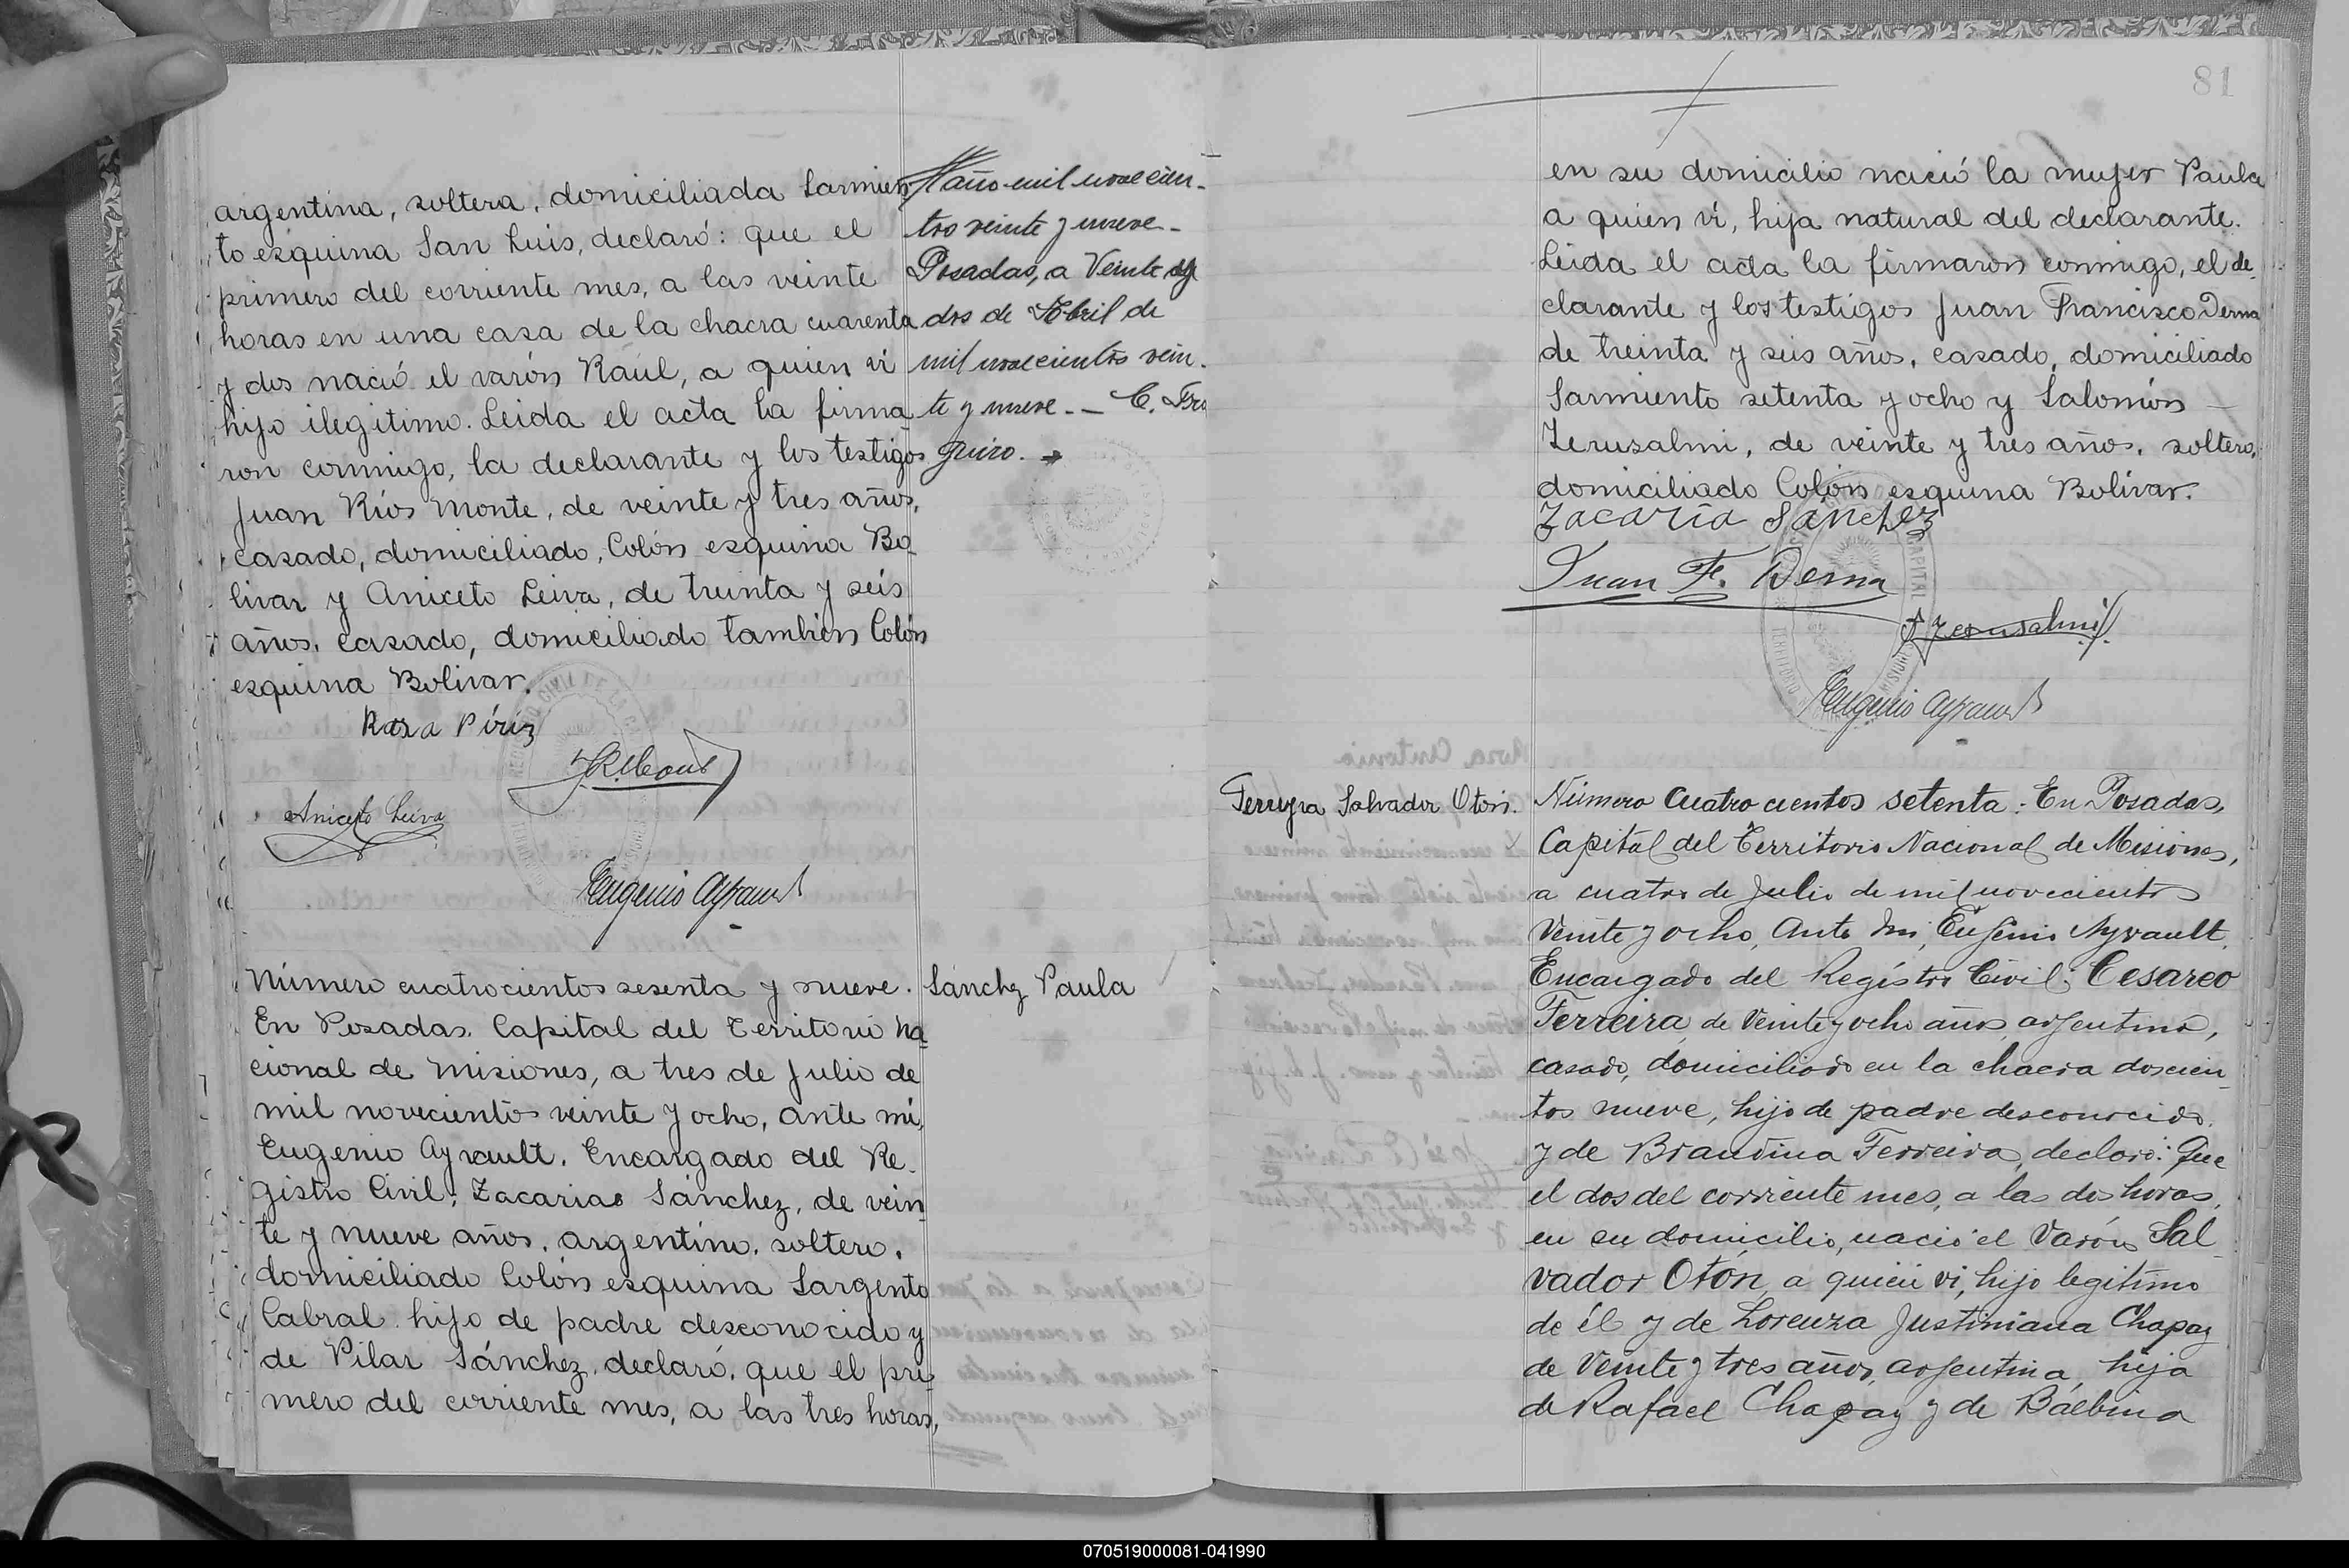 argentina, soltera, domiciliada Sarmien
to esquina San Luis, declaró: que el
primero del corriente mes, a las veinte
horas en una casa de la chacra cuarenta
y dos nació el varón Raúl, a quien vi
hijo ilegitimo. Leida el acta la firma
ron conmigo, la declarante y los testigos
Juan Ríos Monte, de veinte y tres años,
casado, domiciliado, Colón esquina Bo
livar y Aniceto Leiva, de treinta y seis
años, casado, domiciliado tambien Colón
esquina Bolivar.
Rosa Píriz
Aniceto Leiva
Eugenio Ayrault
año mil novecien-
tos veinte y nueve-
Posadas, a Veinte y
dos de Abril de
mil novecientos vein-
te y nueve.-
Número cuatrocientos sesenta y nueve.
En Posadas, Capital del Territorio Na
cional de Misiones, a tres de Julio de
mil novecientos veinte y ocho, ante mí,
Eugenio Ayrault, Encargado del Re-
gistro Civil; Zacarias Sánchez, de vein
te y nueve años, argentino, soltero,
domiciliado Colón esquina Sargento
Cabral hijo de padre desconocido y
de Pilar Sánchez, declaró, que el pri
mero del corriente mes, a las tres horas,
Sánchez Paula
81
en su domicilio nació la mujer Paula
a quien vi, hija natural del declarante.
Leida el acta la firmaron conmigo, el de
clarante y los testigos Juan Francisco Derna
de treinta y seis años, casado, domiciliado
Sarmiento setenta y ocho y Salomón
Zerusalmi, de veinte y tres años, soltero,
domiciliado Colón esquina Bolivar.
Zacaría Sánchez
Juan F. Derna
Zerusalmi
Eugenio Ayrault
Ferreyra Salvador Otón.
Número Cuatro cientos setenta. En Posadas,
Capital del Territorio Nacional de Misiones,
a cuatro de Julio de mil novecientos
Veinte y ocho, Ante mi, Eugenio Ayrault,
Encargado del Registro Civil; Cesareo
Ferreira, de Veinte y ocho años, argentino,
casado, domiciliado en la chacra doscien
tos nueve, hijo de padre desconocido
y de Brandina Ferreira, declaró: Que
el dos del corriente mes, a las dos horas,
en su domicilio, nació el Varón Sal
vador Otón, a quien vi, hijo legitimo
de él y de Lorenza Justiniana Chapay
de Veinte y tres años, argentina, hija
de Rafael Chapay y de Balbina
070519000081-041990